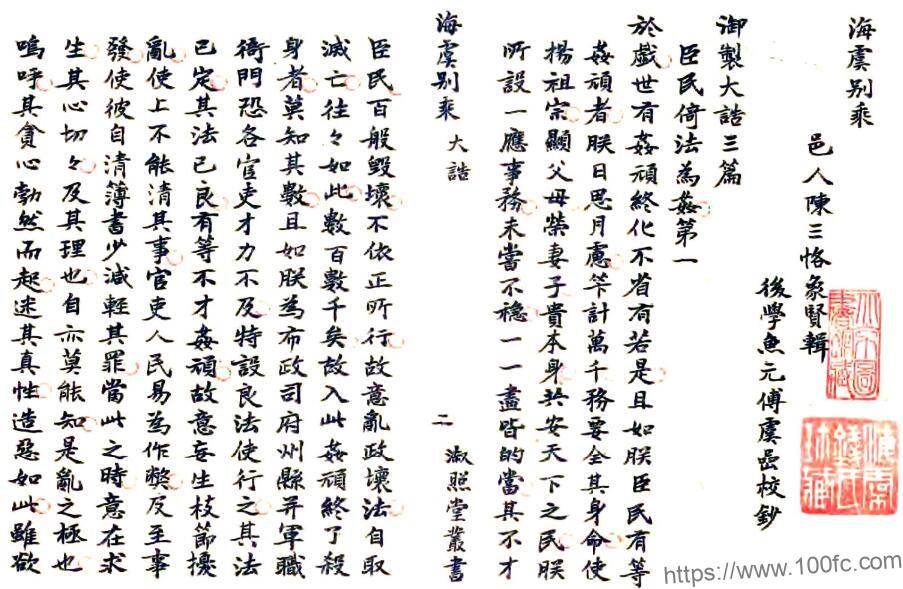 海虞别乘
邑人陳三恪象賢輯
後學魚元傅虞嵒校鈔
御製大誥三篇
臣民倚法為姦第一
於戲世有姦頑終化不省有若是且如朕臣民有等
姦頑者朕日思月慮筭計萬千務要全其身命使
揚祖宗顯父母榮妻子貴本身共安天下之民朕
所設一應事務未嘗不穩一一盡皆的當其不才
海虞别乘 大誥 二 淑照堂叢書
臣民百般毀壞不依正所行故意亂政壞法自取
滅亡往々如此數百數千矣故入此姦頑終了殺
身者莫知其數且如朕為布政司府州縣并軍職
衙門恐各官吏才力不及特設良法使行之其法
已定其法已良有等不才姦頑故意妄生枝節擾
亂使上不能清其事官吏人民易為作弊及至事
發使彼自清薄書少減輕其罪當此之時意在求
生其心切々及其理也自亦莫能知是亂之極也
嗚呼其貪心勃然而起迷其真性造惡如此雖欲
https://www.100fc.com